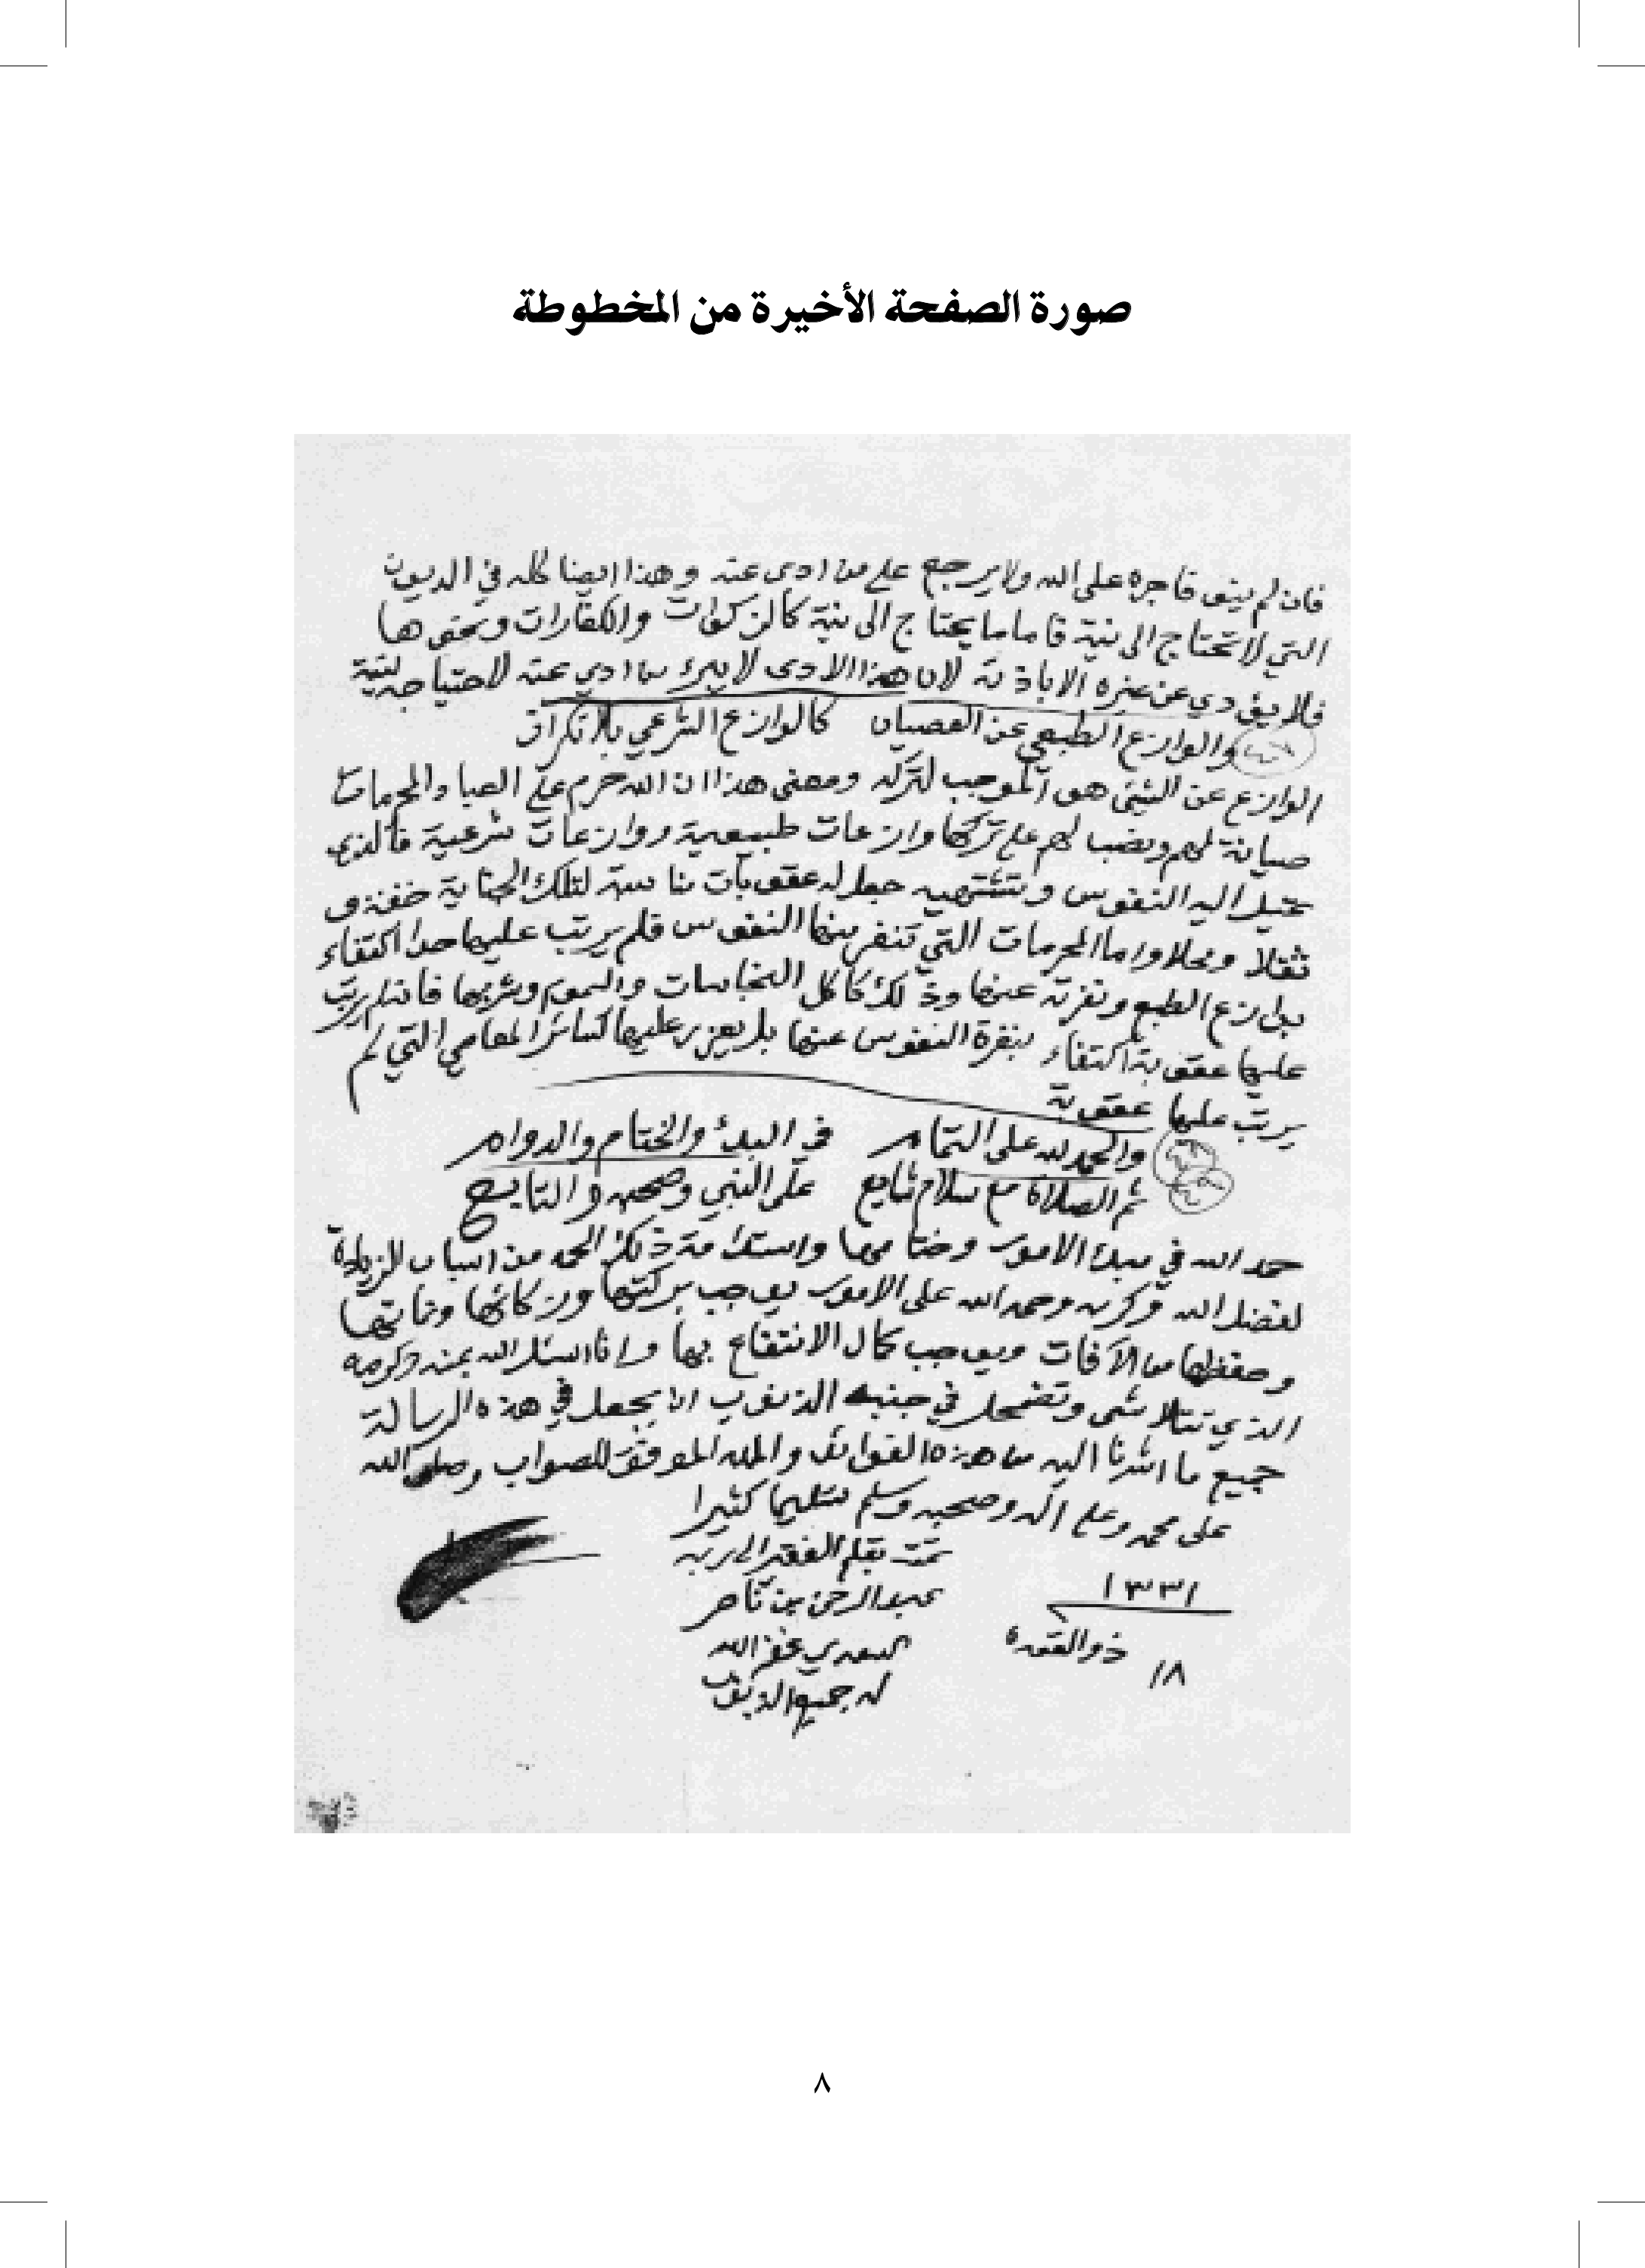 صورة الصفحة الأخيرة من المخطوطة
فان لم ينو فاجره على الله ولا يرجع على من ادى عنه وهذا ايضا كله في الديون
التي لا تحتاج الى نية فاما ما يحتاج الى نية كالزكوات والكفارات ونحوها
فلا يؤدي عن غيره الا باذنه لان هذا الادى لا يبرئ من ادي عنه لاحتياجه لنية
والوازع الطبعي عن العصيان كالوازع الشرعي بلا نكران
الوازع عن الشيئ هو الموجب لتركه ومعنى هذا ان الله حرم على العباد المحرمات
صيانة لهم ونصب لهم على تركها وازعات طبيعية ووازعات شرعية فالذي
تميل اليه النفوس وتشتهيه جعل له عقوبات مناسبة لتلك الجناية خفة و
ثقلا ومحلا واما المحرمات التي تنفر منها النفوس فلم يرتب عليها حدا اكتفاء
بوازع الطبع ونفرته عنها وذلك كاكل النجاسات والسموم وشربها فانه لم يرتب
عليها عقوبة اكتفاء بنفرة النفوس عنها بل يعزر عليها كسائر المعاصي التي لم
يرتب عليها عقوبة
والحمد لله على التمام في البدئ والختام والدوام
ثم الصلاة مع سلام شايع على النبي وصحبه والتابع
حمد الله في مبدئ الامور وختامها واستدامة ذلك الحمد من اسباب المزيادة
لفضل الله وكرمه وحمد الله على الامور يوجب بركتها وزكائها ونمائها
وحفظها من الآفات ويوجب كمال الانتفاع بها وانا اسئل الله بمنه وكرمه
الذي تتلاشى وتضمحل في جنبه الذنوب ان يجعل في هذه الرسالة
جميع ما اشرنا اليه من هذه الفوائد والله الموفق للصواب وصلى الله
على محمد وعلى آله وصحبه وسلم تسليما كثيرا
تمت بقلم الفقير الى ربه
عبد الرحمن بن ناصر
السعدي غفر الله
له جميع الذنوب
١٣٣١
ذو القعدة
١٨
٨